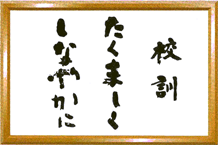 校訓
たくましく
しなやかに